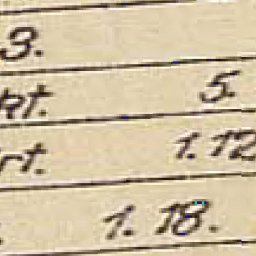 3.
kt. 5.
rt. 1.12
1.18.